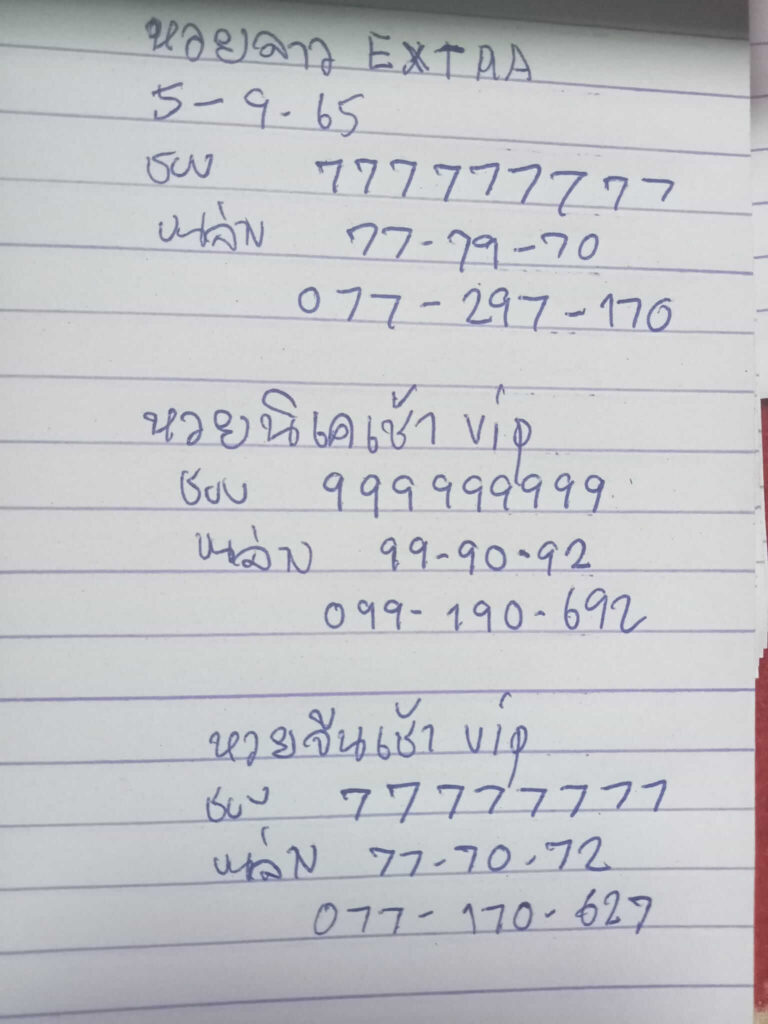 หวยลาว EXTRA
5-9.65
ชอบ 777777777
หล่าง 77-79-70
077-297-170
หวยนิเคเช้า vip
ชอบ 999999999
หล่าง 99-90-92
099-190-692
หวยจีนเช้า vip
ชอบ 77777777
หล่าง 77-70-72
077-170-627